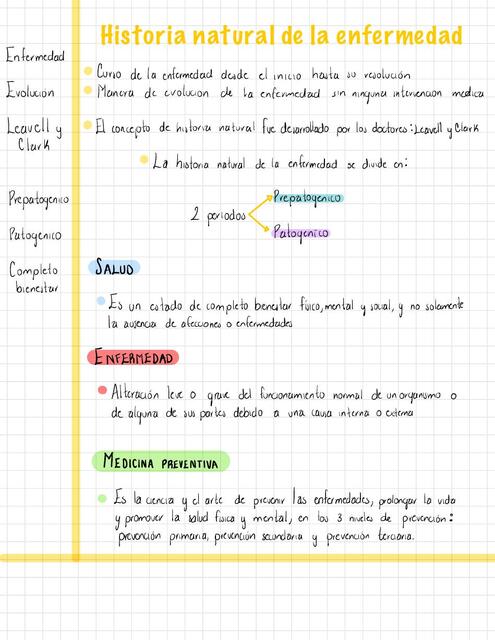 Historia natural de la enfermedad
Enfermedad
Evolución
Leavell y
Clark
Prepatogenico
Patogenico
Completo
bienestar
Curso de la enfermedad desde el inicio hasta su resolución
Manera de evolucion de la enfermedad sin ninguna intervencion medica
El concepto de historia natural fue desarrollado por los doctores: Leavell y Clark
La historia natural de la enfermedad se divide en:
2 periodos
Prepatogenico
Patogenico
SALUD
Es un estado de completo bienestar físico, mental y social, y no solamente
la ausencia de afecciones o enfermedades
ENFERMEDAD
Alteración leve o grave del funcionamiento normal de un organismo o
de alguna de sus partes debido a una causa interna o externa
MEDICINA PREVENTIVA
Es la ciencia y el arte de prevenir las enfermedades, prolongar la vida
y promover la salud fisica y mental, en los 3 niveles de prevención:
prevención primaria, prevención secundaria y prevención terciaria.